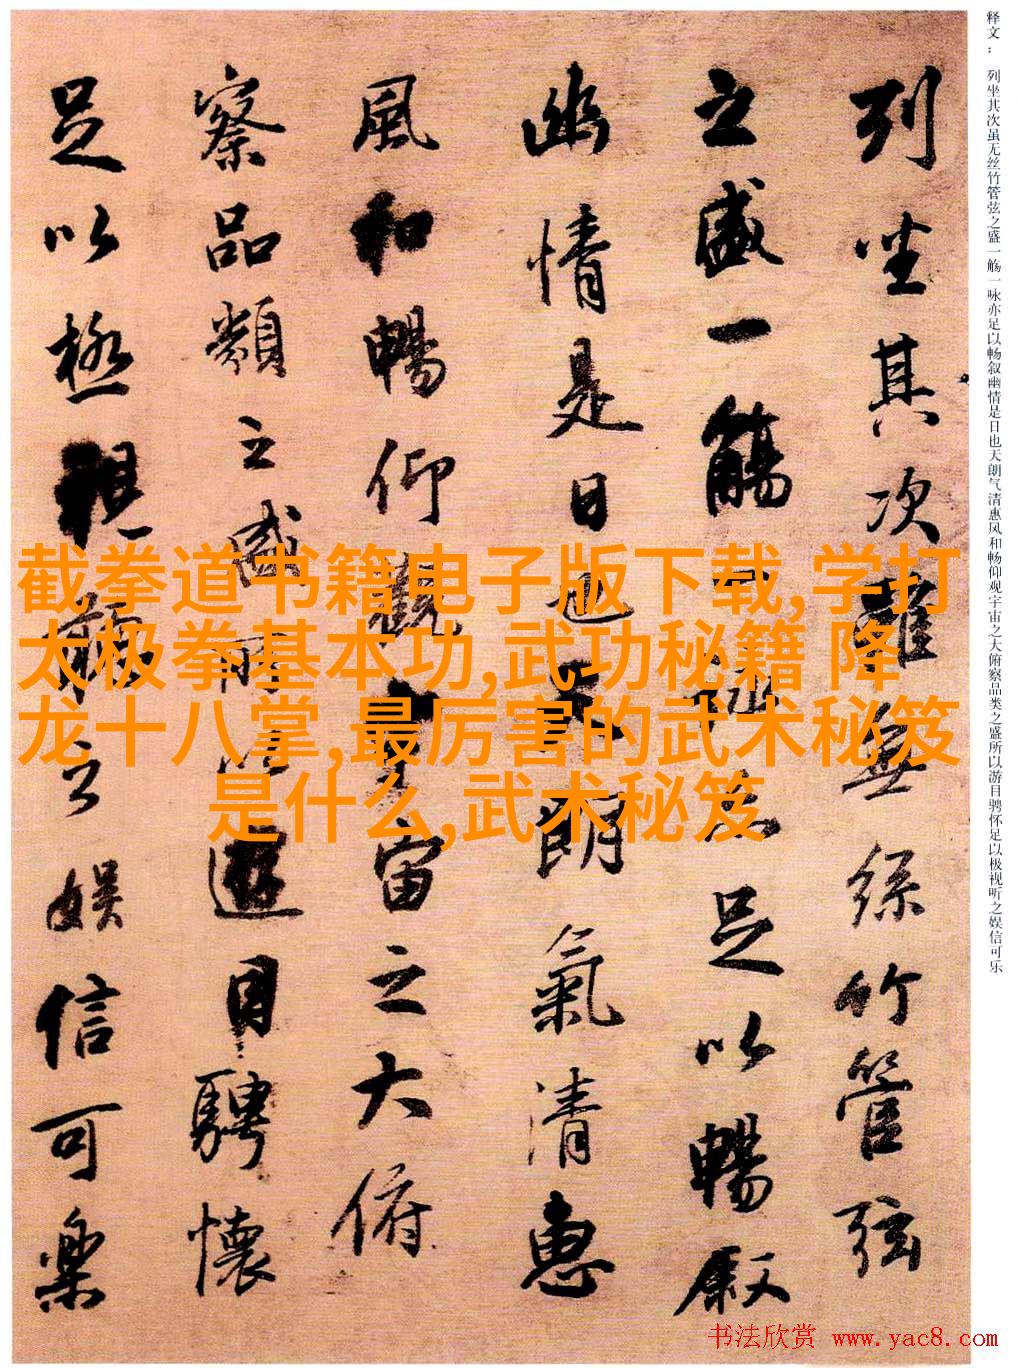 释文： 列坐其次虽无丝竹管弦之盛一觞一咏亦足以畅叙幽情是日也天朗气清惠风和畅仰观宇宙之大俯察品类之盛所以游目骋怀足以极视听之娱信可乐
列坐其次雖無絲竹管弦
之盛一觴一詠亦足以暢叙
幽情是日也天朗氣清惠
風和暢仰觀宇宙之大俯
察品類之盛所以遊目騁懷
足以極視聽之娛信可樂
截拳道书籍电子版下载,学打
太极拳基本功,武功秘籍 降
龙十八掌,最厉害的武术秘笈
是什么,武术秘笈
书法欣赏 www.yac8.com